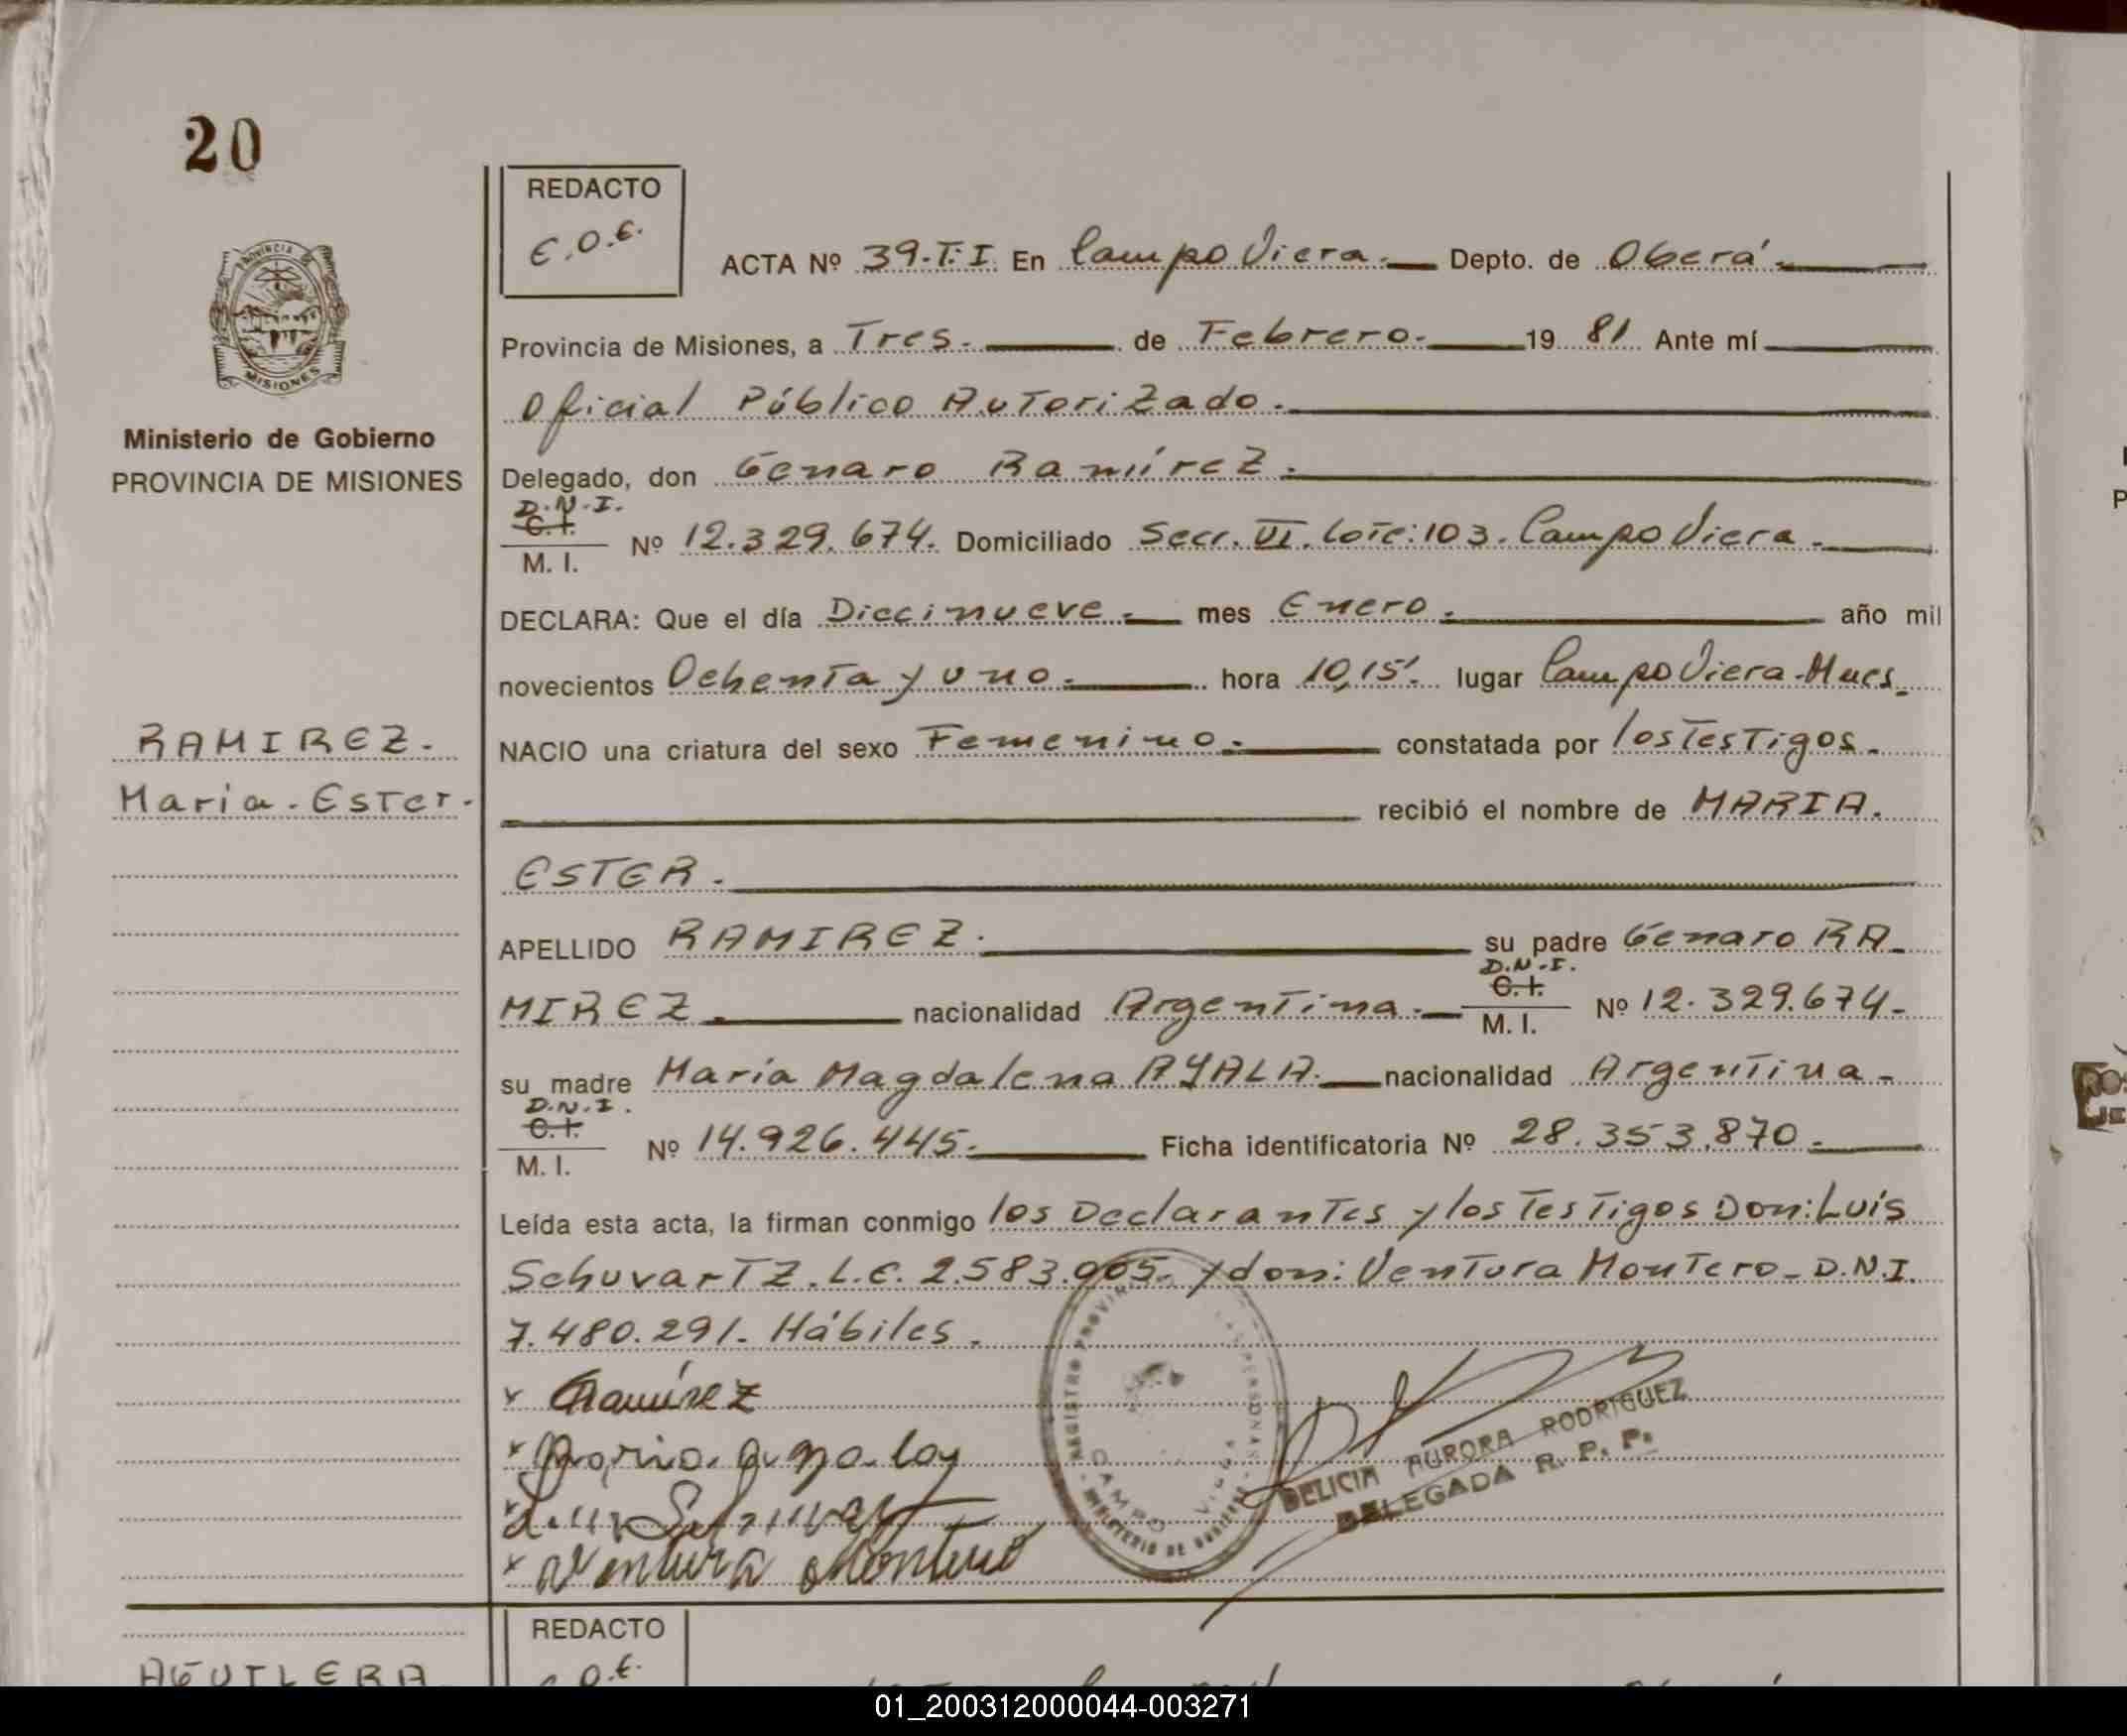 20
REDACTO
E.O.E.
ACTA Nº 39.T.I. En Campo Viera. Depto. de Oberá.
PROVINCIA
MISIONES
Provincia de Misiones, a Tres. de Febrero. 19 81 Ante mí
Oficial Público Autorizado.
Ministerio de Gobierno
PROVINCIA DE MISIONES
Delegado, don Genaro Ramírez.
D.N.I.
C.I.
M. I. Nº 12.329.674. Domiciliado Secc. VI. Lote: 103. Campo Viera.
DECLARA: Que el día Diecinueve. mes Enero. año mil
novecientos Ochenta y uno. hora 10,15'. lugar Campo Viera. Mnes.
RAMIREZ.
Maria. Ester.
NACIO una criatura del sexo Femenino. constatada por los Testigos.
recibió el nombre de MARIA.
ESTER.
APELLIDO RAMIREZ. su padre Genaro RA
D.N.I.
C.I.
MIREZ. nacionalidad Argentina. M. I. Nº 12.329.674.
su madre María Magdalena AYALA. nacionalidad Argentina.
D.N.I.
C.I.
M. I. Nº 14.926.445. Ficha identificatoria Nº 28.353.870.
Leída esta acta, la firman conmigo los Declarantes y los Testigos Don: Luís
SchuvarTZ. L.E. 2.583.905. y don: Ventura Montero. D.N.I.
7.480.291. Hábiles.
x Ramírez
REGISTRO PROVIN LAS PERSONAS
CAMPO VIERA
MINISTERIO DE GOBIERNO
DELICIA AURORA RODRIGUEZ
DELEGADA R. P. P.
x ventura Montero
REDACTO
AGUILERA
01_200312000044-003271